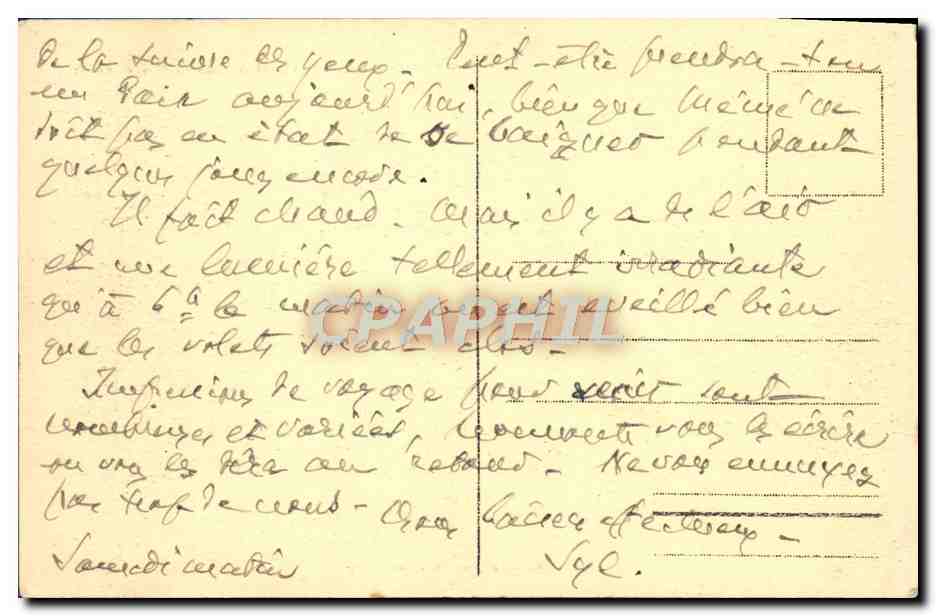 de la suivre des yeux. Peut-être prendra-t-on
un bain aujourd'hui, bien que Mémé ne
soit pas en état de se baigner pendant
quelques jours encore.
Il fait chaud. Mais il y a de l'air
et une lumière tellement irradiante
qu'à 6h le matin on est éveillé bien
que les volets soient clos.
CPAPHIL
Impressions de voyage pour sont
nombreuses et variées, vous les écrire
ou vous les dire au retour. Ne vous ennuyez
pas trop de nous. Gros baisers affectueux.
Samedi matin Syl.